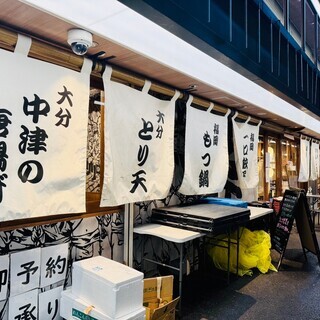 大分
中津の
唐揚げ
大分
とり天
福岡
もつ鍋
福岡
一口餃子
予約
承